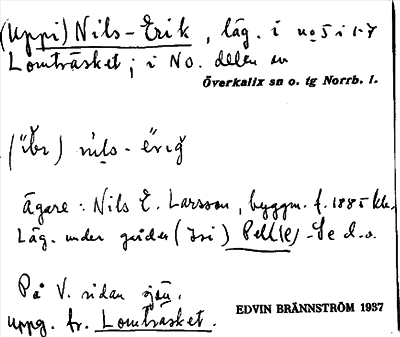 (Uppi) Nils-Erik, läg. i no 5 i 1-7
Lomträsket; i NO. delen av
Överkalix sn o. tg Norrb. l.
nils-
Ägare: Nils E. Larsson, byggm. f. 1885
Läg. under gården Pell(e) Se d.o.
På V. sidan sjön.
uppg. fr. Lomträsket.
EDVIN BRÄNNSTRÖM 1937